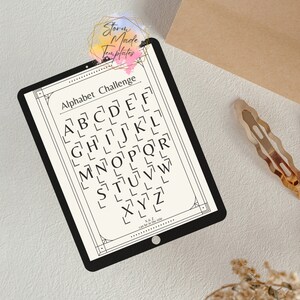 Storm
Made
Templates
Alphabet Challenge
A B C D E F
G H I J K L
M N O P Q R
S T U V W
X Y Z